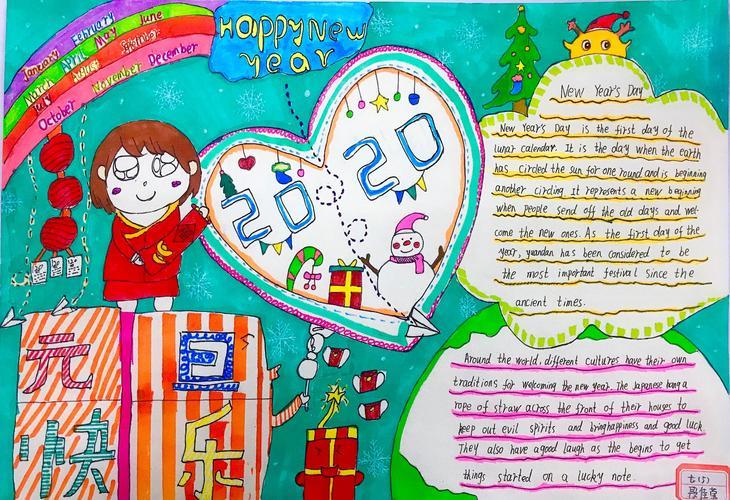 HAppy New
year
January February
March April May June
July August September
October November December
2020
New Year's Day
New Year's Day is the first day of the
lunar calendar. It is the day when the earth
has circled the sun for one round and is beginning
another circling. It represents a new beginning
when people send off the old days and wel-
come the new ones. As the first day of the
year, yuandan has been considered to be
the most important festival since the
ancient times.
Around the world, different cultures have their own
traditions for welcoming the new year. The Japanese hang a
rope of straw across the front of their houses to
keep out evil spirits and bring happiness and good luck.
They also have a good laugh as the begins to get
things started on a lucky note.
元旦
快乐
七(5)